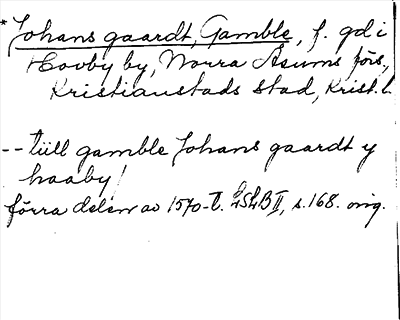 *Johans gaardt, Gamble, f. gd i
Hovby by, Norra Åsums förs.,
Kristianstads stad, Krist. l.
-- tiill gamble Johans gaardt y
haaby/
förra delen av 1570-t. LSLB II, s. 168. orig.